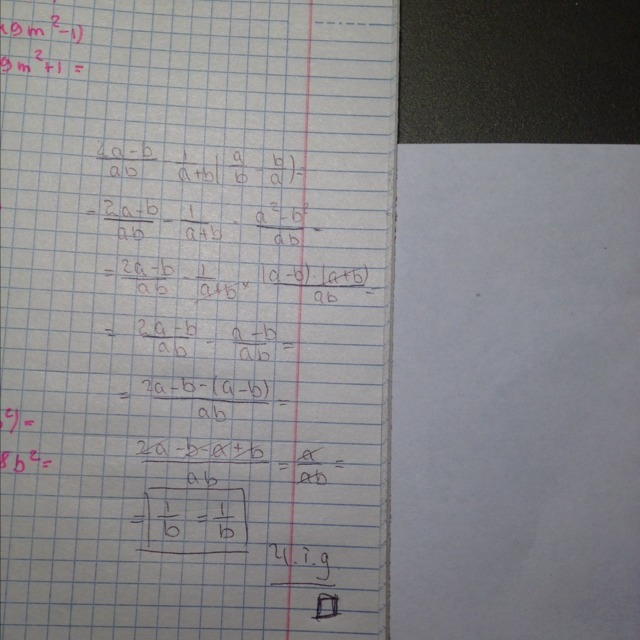 9m²-1)
9m²+1=
2a-b/ab - 1/a+b(a/b - b/a)=
=2a-b/ab - 1/a+b · a²-b²/ab =
=2a-b/ab - 1/a+b · (a-b)(a+b)/ab =
= 2a-b/ab - a-b/ab =
= 2a-b-(a-b)/ab =
²)=
2a-b-a+b/ab = a/ab =
8b²=
= 1/b = 1/b
ч.т.д